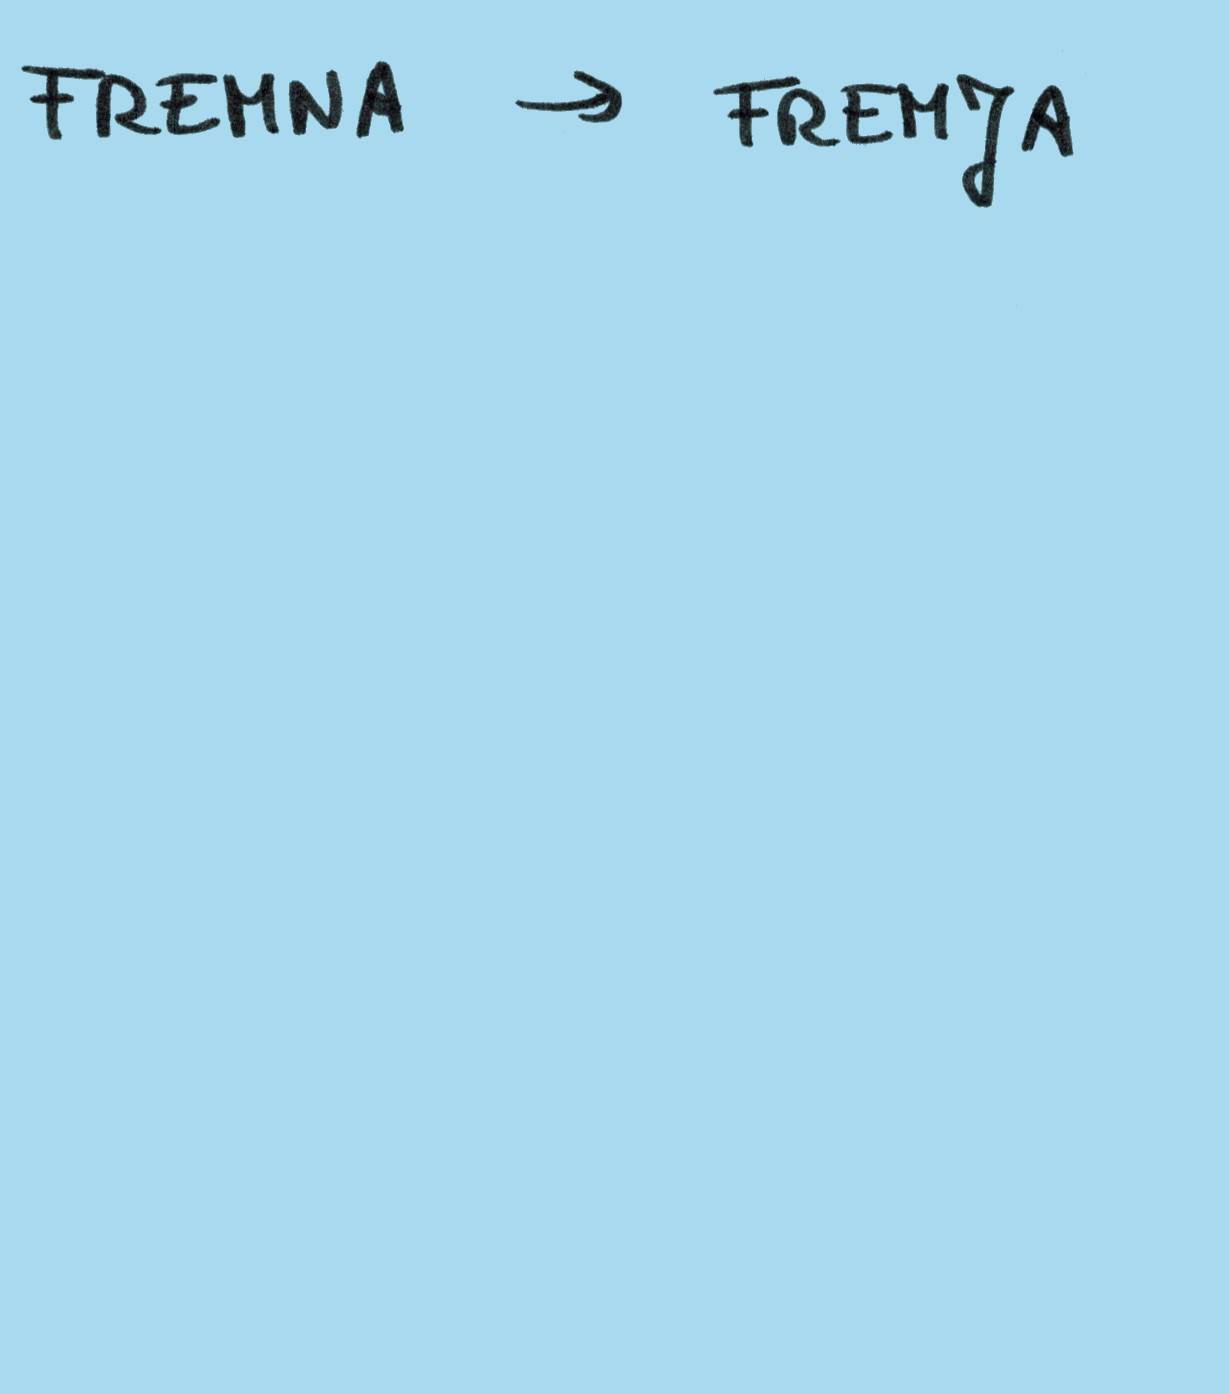 FREMNA → FREMJA